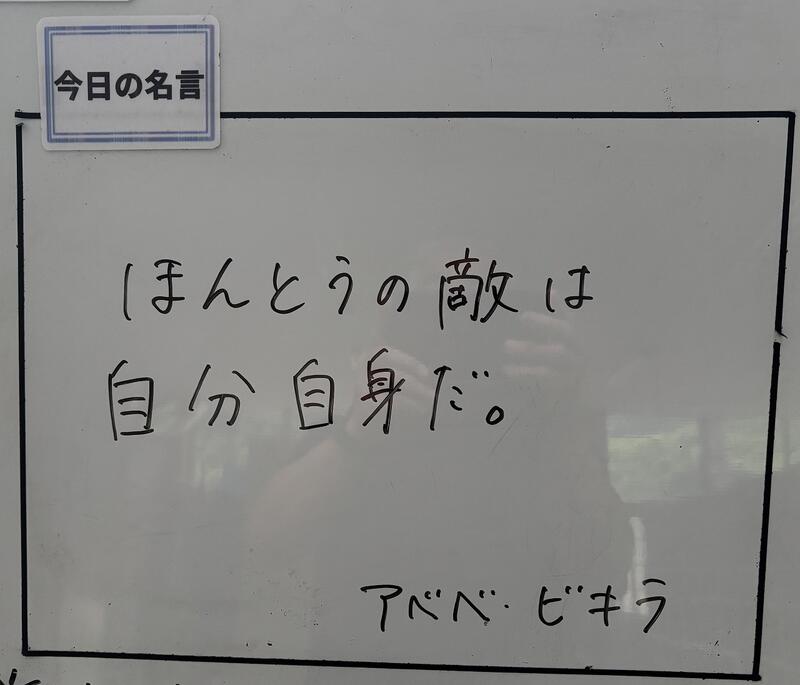 今日の名言
ほんとうの敵は
自分自身だ。
アベベ・ビキラ